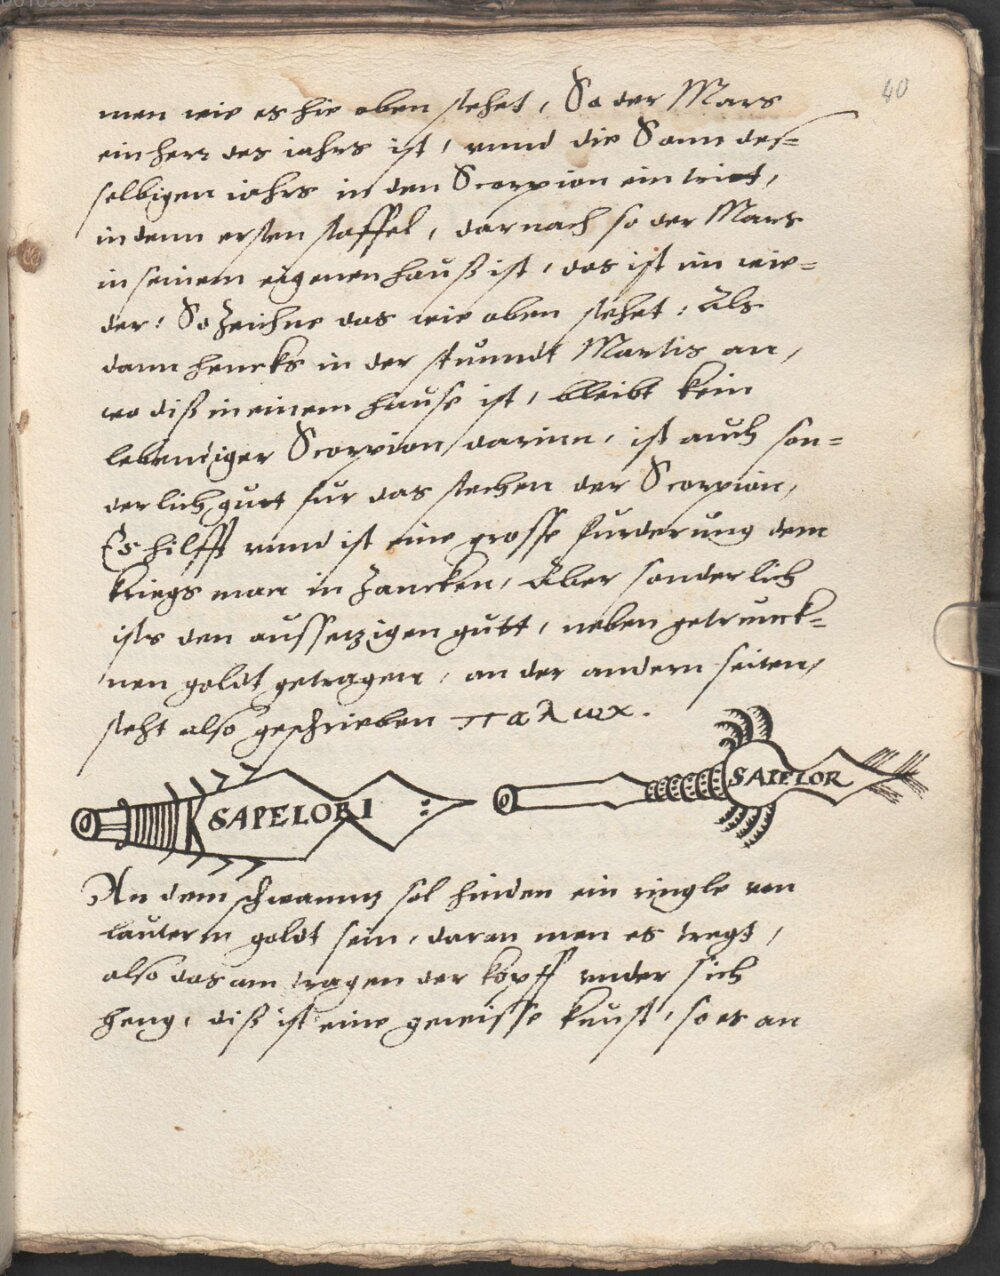 40
men wie es hie oben stehet, So der Mars
ein herr des iahrs ist, vnnd die Sonn des=
selbigen iahrs in den Scorpion ein tritt,
in denn ersten staffel, darnach so der Mars
in seinem eigenen hauß ist, das ist im wie=
der: So zeichne das wie oben stehet: Als
dann hencks in der stunndt Martis an,
wo diß in einem hause ist, bleibt kein
lebendiger Scorpion darinn, ist auch son=
derlich gutt fur das stechen der Scorpion,
Es hilfft vnnd ist eine grosse furderung dem
kriegs man in Zancken, Aber sonderlich
ists den aussetzigen gutt, neben getrunck=
nen goldt getragen, an der andern seiten,
steht also geschrieben παλωχ.
SAPELORI
SAPELOR
An dem schwanntz sol hinden ein ringle von
lauterm goldt sein, daran men es tregt,
also das am tragen der kopff vnder sich
heng, diß ist eine gewisse kunst, so es an